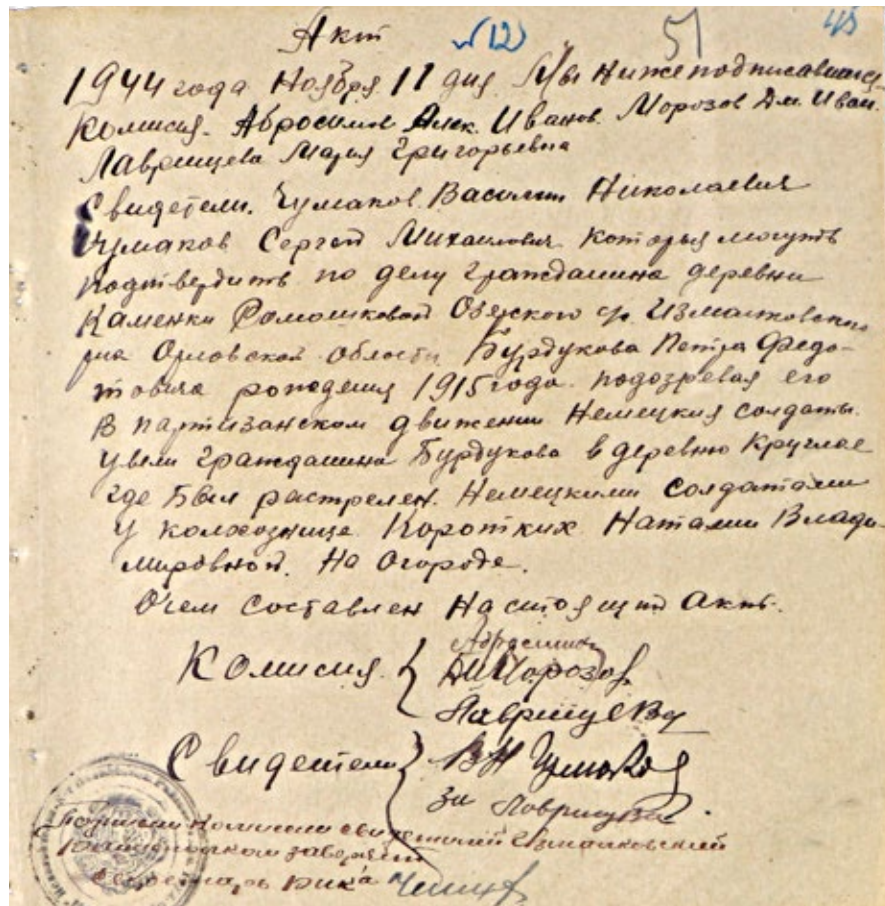 Акт (12) 51 48
1944 года Ноября 11 дня Мы Нижеподписавшиеся
Комисия. Абросимов Алек. Иванов. Морозов Дм. Иван.
Лаврищева Марья Григорьевна
Свидетели. Чумаков Василий Николаевич
Чумаков Сергей Михаилович которыя могуть
подтвердить по делу гражданина деревни
Каменки Ромашковой Озерского с/с Измалковского
р-на Орловской Области Бурдукова Петра Федо-
товича рождения 1915 года. подозревая его
в партизанском движении Немецкия солдаты.
увели гражданина Бурдукова в деревню Круглое
где Был растрелен. Немецкими солдатами
у колхознице Коротких Наталии Влади-
мировной. На Огороде.
О чем составлен Настоящий Актъ.
Комисия { Абросимов
ДИ Морозов
Лаврищева
Свидетели { ВН Чумаков
за Лаврищева
Подписи комиссии свидетелей Измалковский
заверяет
секретарь рик'а